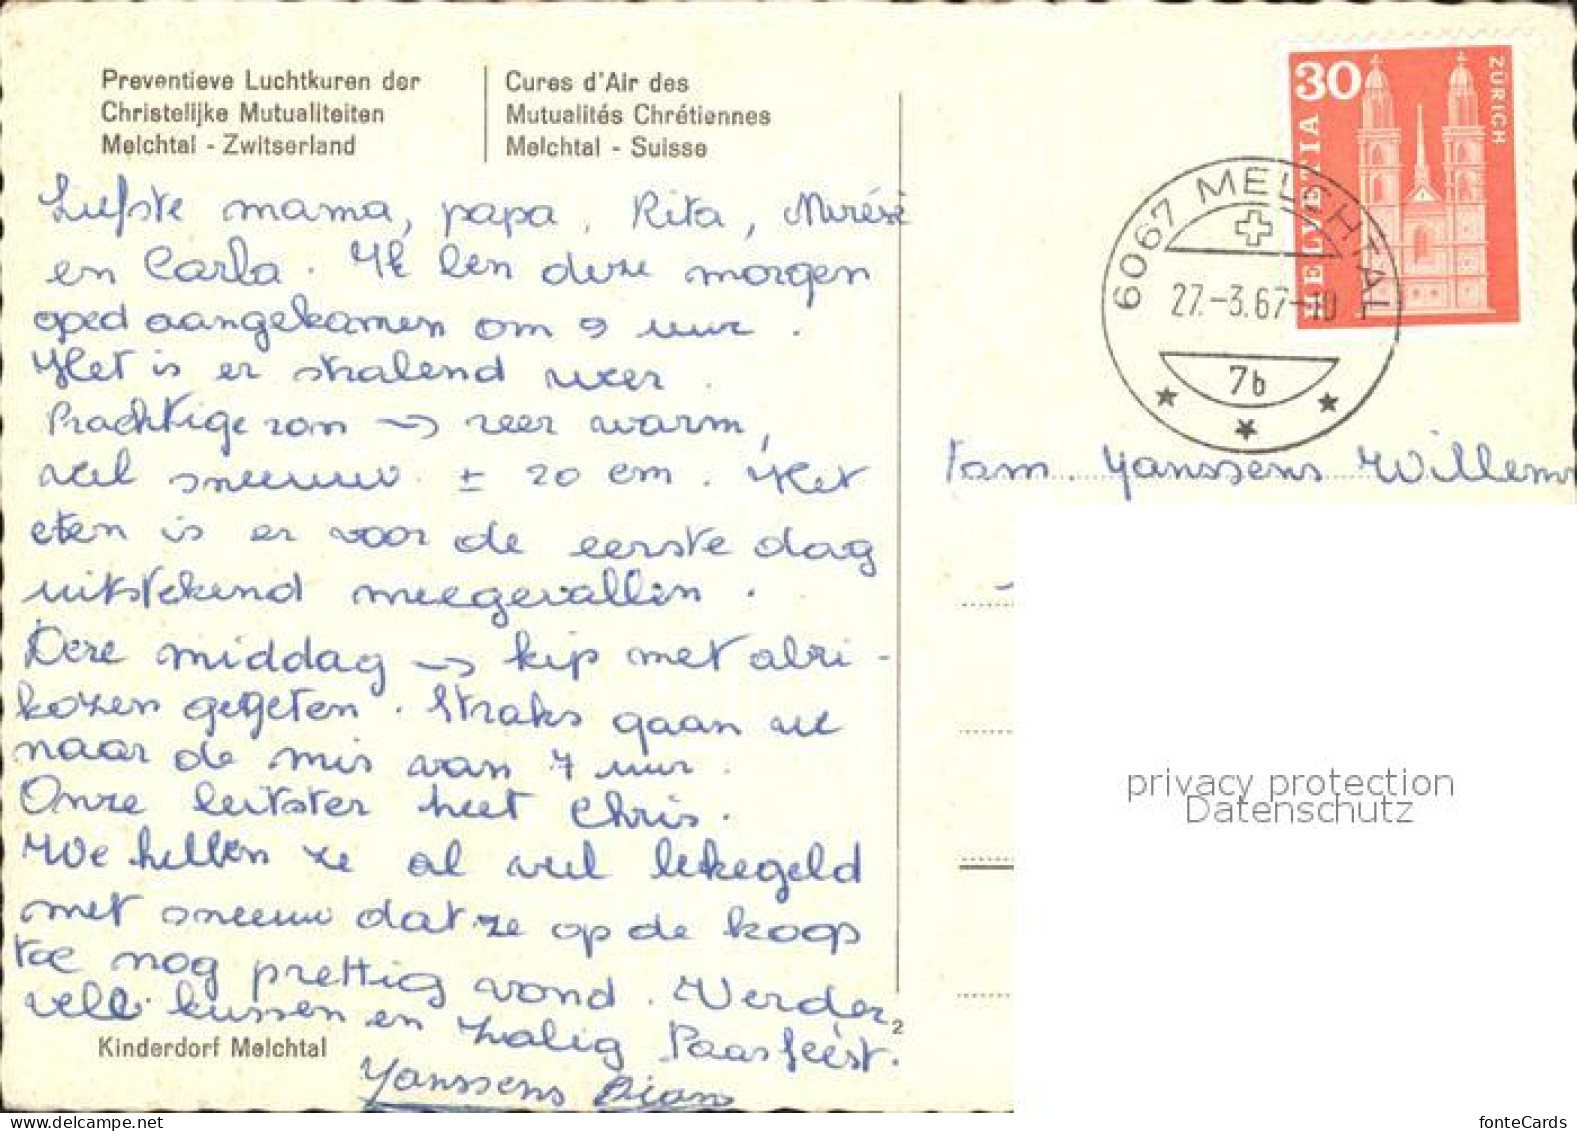 Preventieve Luchtkuren der
Christelijke Mutualiteiten
Melchtal - Zwitserland
Cures d'Air des
Mutualités Chrétiennes
Melchtal - Suisse
30
HELVETIA
ZÜRICH
6067 MELCHTAL
27.-3.67-10
7b
Liefste mama, papa, Rita,
en Carla. Ik ben deze morgen
goed aangekomen om 9 uur.
Het is er stralend weer.
Prachtige zon → zeer warm,
veel sneeuw ± 20 cm. Het
eten is er voor de eerste dag
uitstekend meegevallen.
Deze middag → kip met abri-
kozen gegeten. Straks gaan we
naar de mis van 7 uur.
Onze leitster heet Chris.
We hebben ze al veel lekegeld
met sneeuw dat ze op de koop
toe nog prettig vond. Verder
vele kussen en zalig Paasfeest.
Janssens
Fam. Janssens Willems
2
Kinderdorf Melchtal
privacy protection
Datenschutz
www.delcampe.net
fonteCards